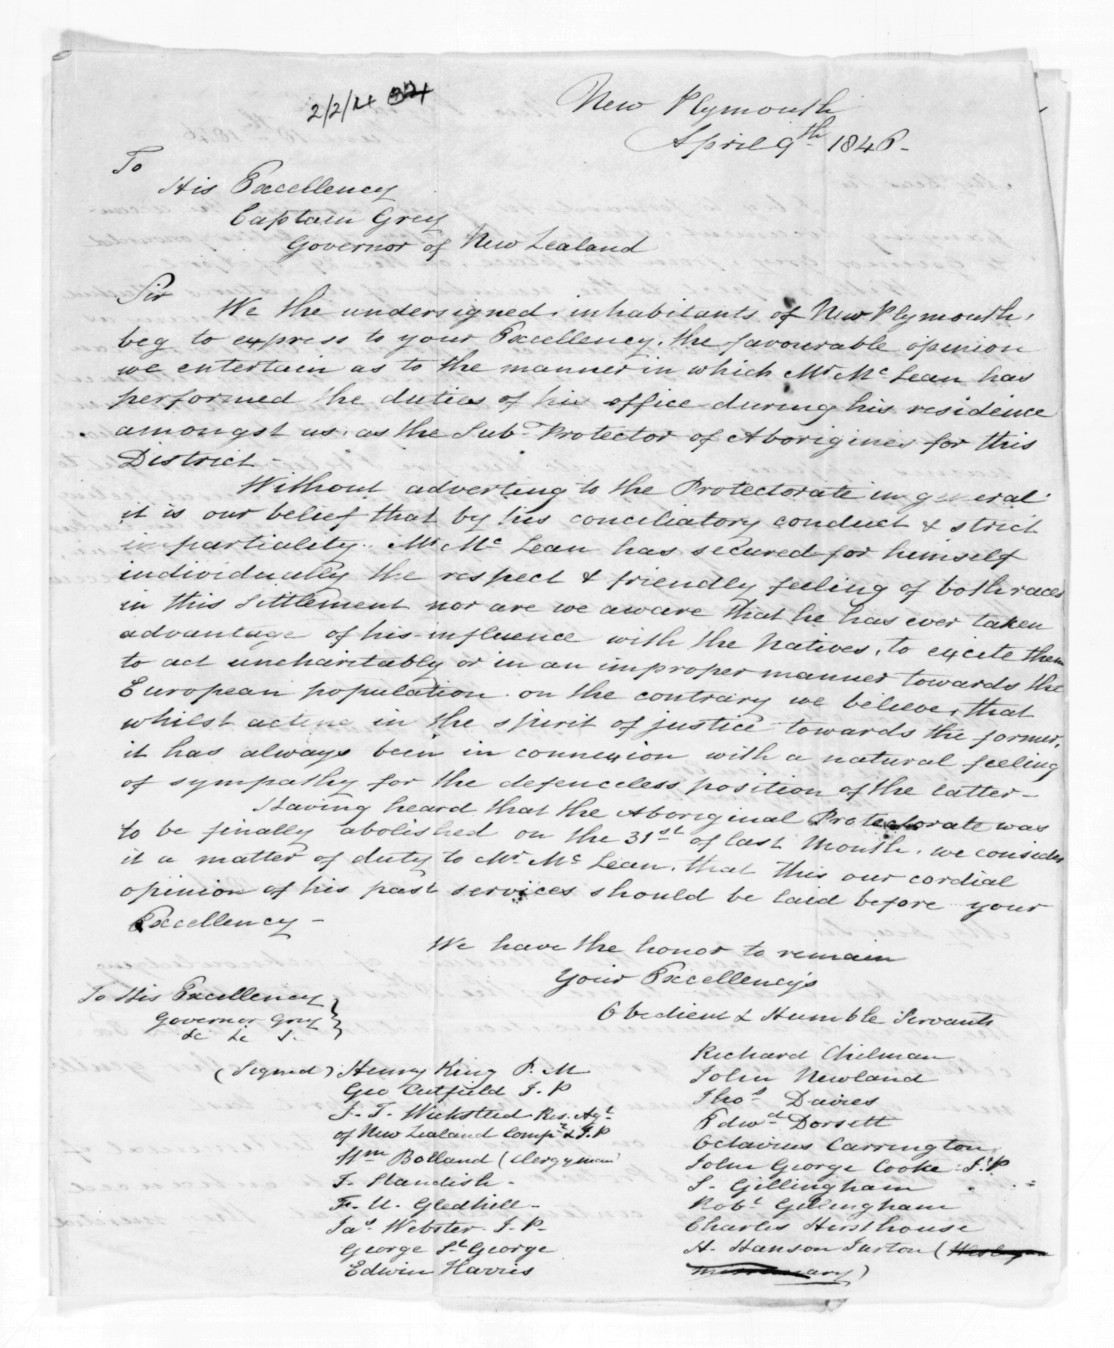 2/2/24
New Plymouth
April 9th 1846-
To
His Excellency
Captain Grey
Governor of New Zealand
Sir
We the undersigned, inhabitants of New Plymouth,
beg to express to your Excellency, the favourable opinion
we entertain as to the manner in which Mr McLean has
performed the duties of his office during his residence
amongst us, as the Sub-Protector of Aborigines for this
District-
Without adverting to the Protectorate in general
it is our belief that by his conciliatory conduct & strict
impartiality Mr McLean has secured for himself
individually the respect & friendly feeling of both races
in this Settlement nor are we aware that he has ever taken
advantage of his influence with the Natives, to excite them
to act uncharitably or in an improper manner towards the
European population. on the contrary we believe, that
whilst acting in the spirit of justice towards the former,
it has always been in connexion with a natural feeling
of sympathy for the defenceless position of the latter-
Having heard that the Aboriginal Protectorate was
to be finally abolished on the 31st of last Month, we consider
it a matter of duty to Mr McLean, that this our cordial
opinion of his past services should be laid before your
Excellency-
We have the honor to remain
Your Excellency's
Obedient & Humble Servants
To His Excellency
Governor Grey
&c &c &.
(Signed) Henry King P.M
Geo Cutfield J.P
J.T. Wicksteed Res. Agt
of New Zealand Compy & J.P
Wm Bolland (Clergyman
T. Standish-
F.U. Gledhill-
Jas Webster J.P-
George St George
Edwin Harris
Richard Chilman
John Newland
Thos Davies
Edwd Dorsett
Octavius Carrington
John George Cooke J.P
S. Gillingham
Robt Gillingham
Charles Hursthouse
H. Hanson Turton (Wesleyan
missionary)